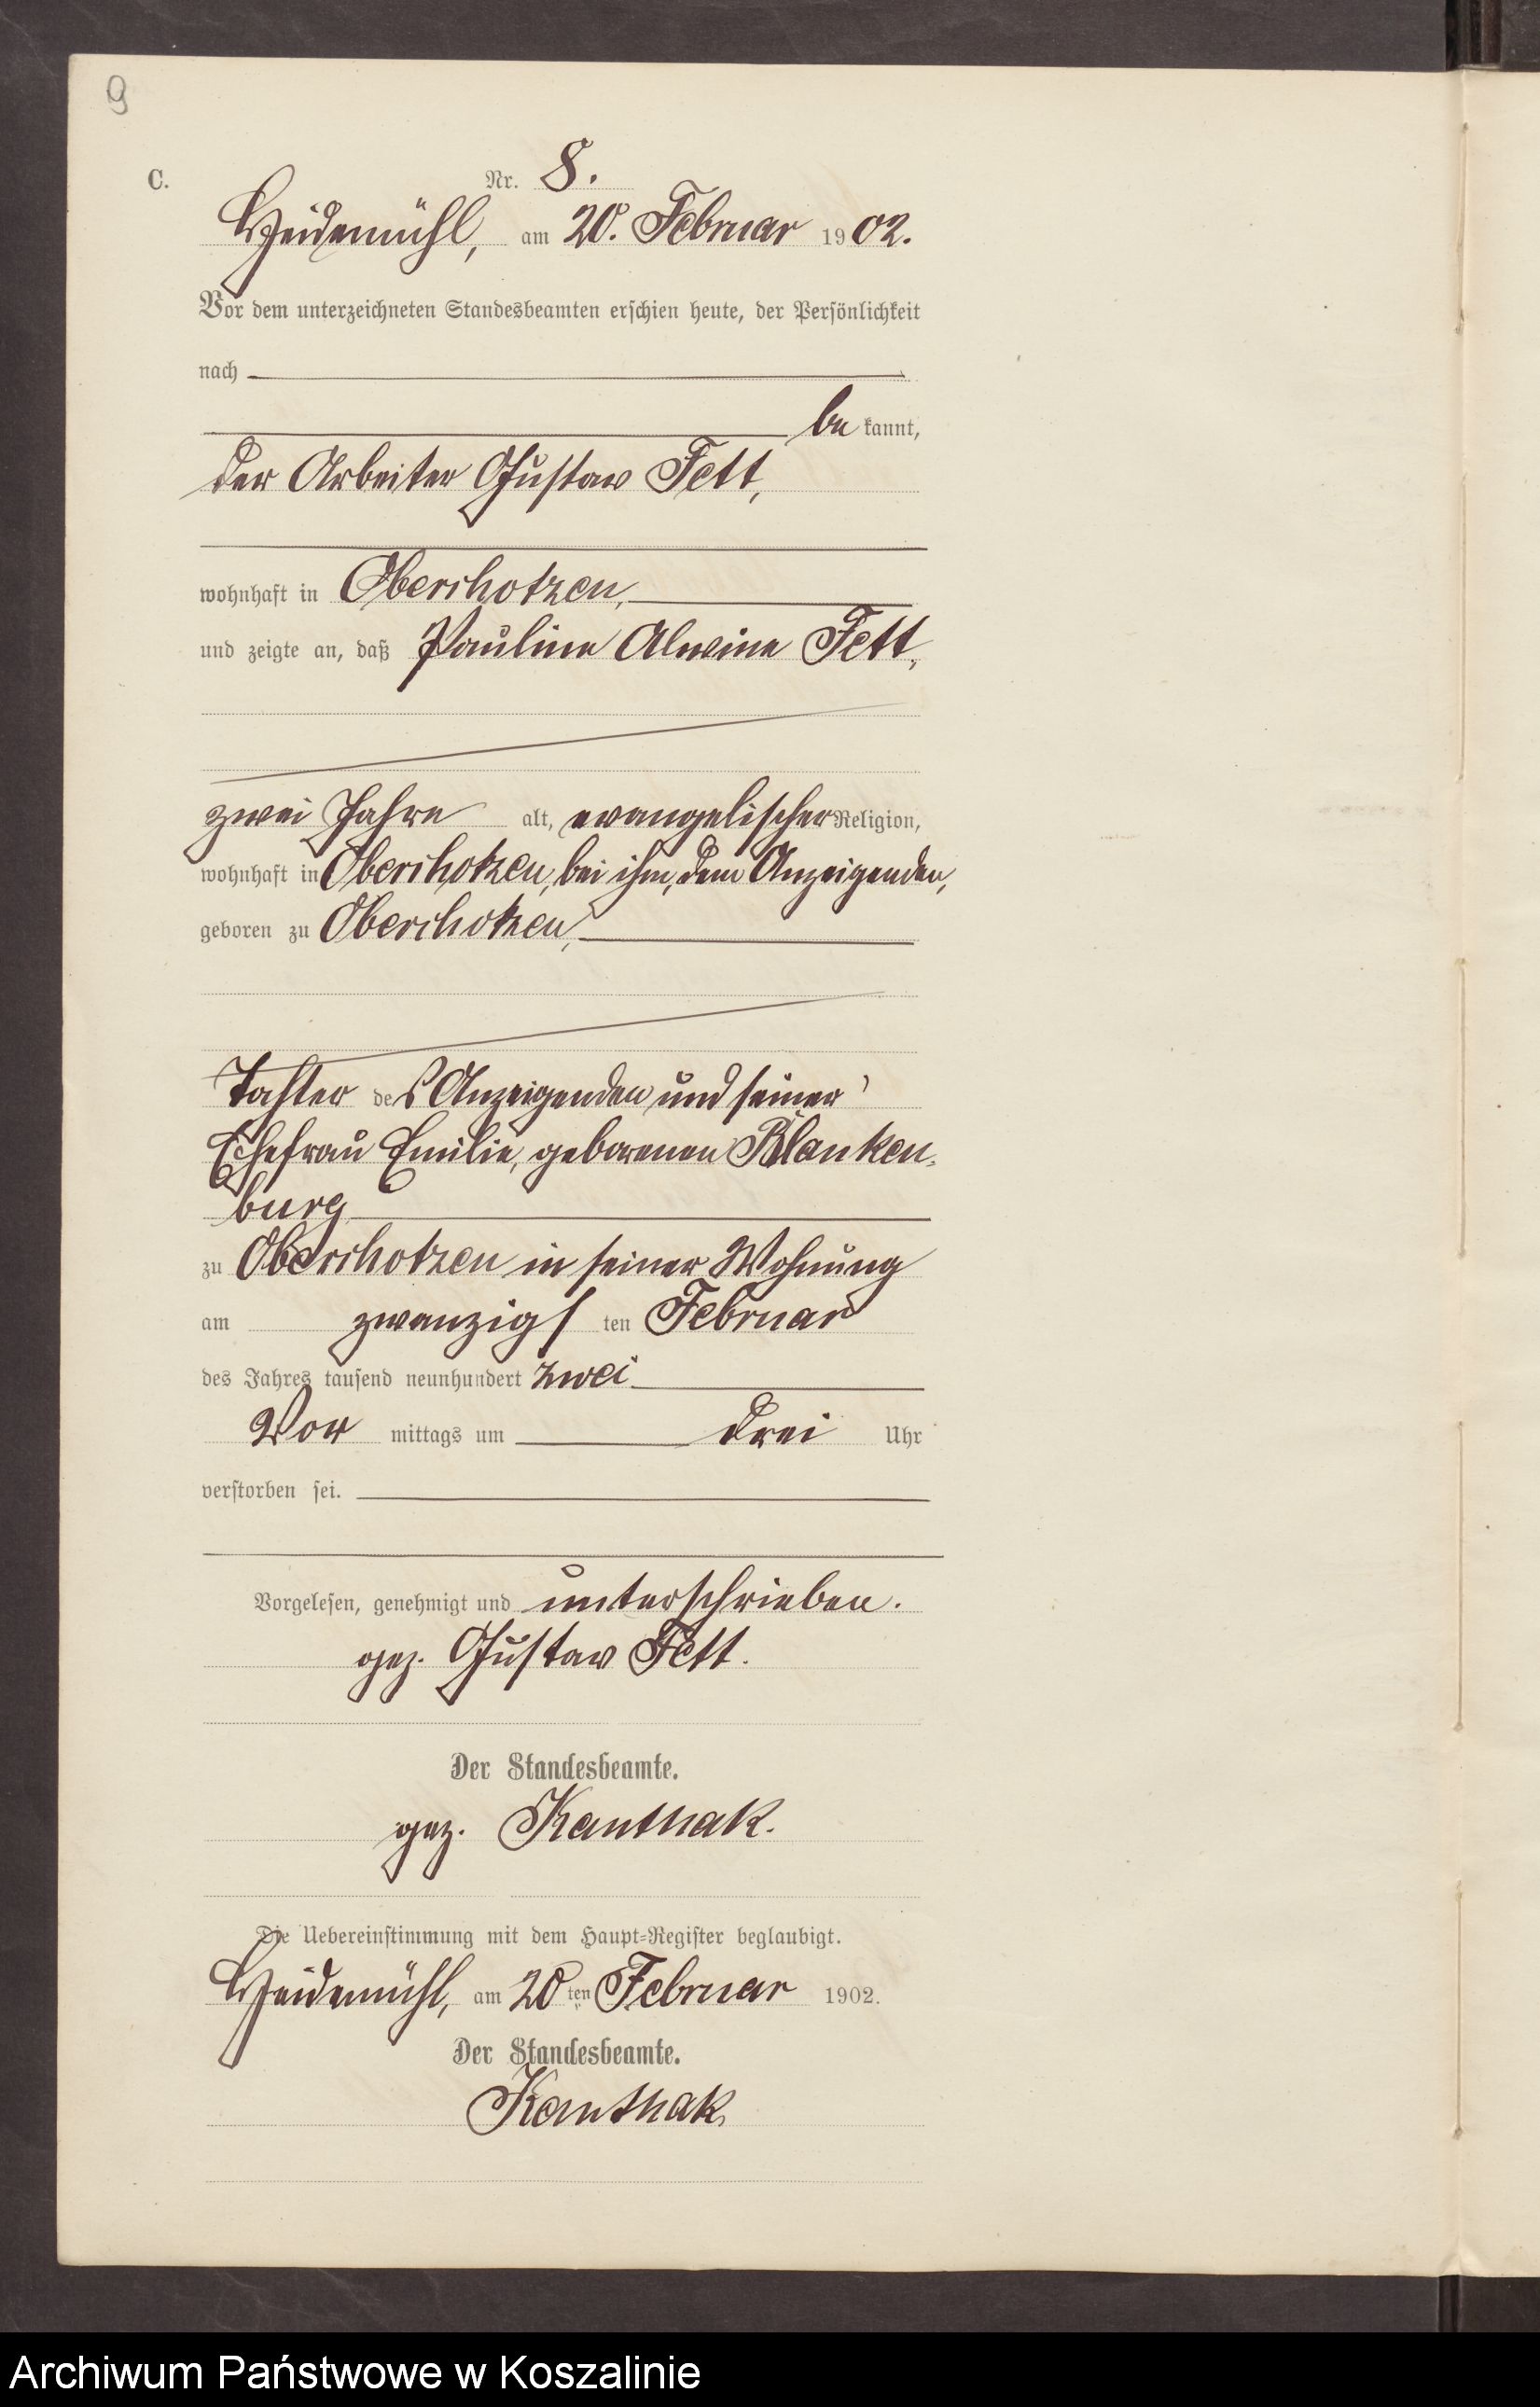 9
C.
Nr. 8.
Heidemühl, am 20. Februar 1902.
Vor dem unterzeichneten Standesbeamten erschien heute, der Persönlichkeit
nach
be kannt,
der Arbeiter Gustav Fett,
wohnhaft in Oberchotzen,
und zeigte an, daß Pauline Alwine Fett,
zwei Jahre alt, evangelischer Religion,
wohnhaft in Oberchotzen, bei ihm, dem Anzeigenden,
geboren zu Oberchotzen,
Tochter des Anzeigenden und seiner
Ehefrau Emilie, geborenen Blanken-
burg
zu Oberchotzen in seiner Wohnung
am zwanzigsten Februar
des Jahres tausend neunhundert zwei
Vor mittags um drei Uhr
verstorben sei.
Vorgelesen, genehmigt und unterschrieben.
gez. Gustav Fett.
Der Standesbeamte.
gez. Kanthak.
Die Uebereinstimmung mit dem Haupt-Register beglaubigt.
Heidemühl, am 20ten Februar 1902.
Der Standesbeamte.
Kanthak
Archiwum Państwowe w Koszalinie